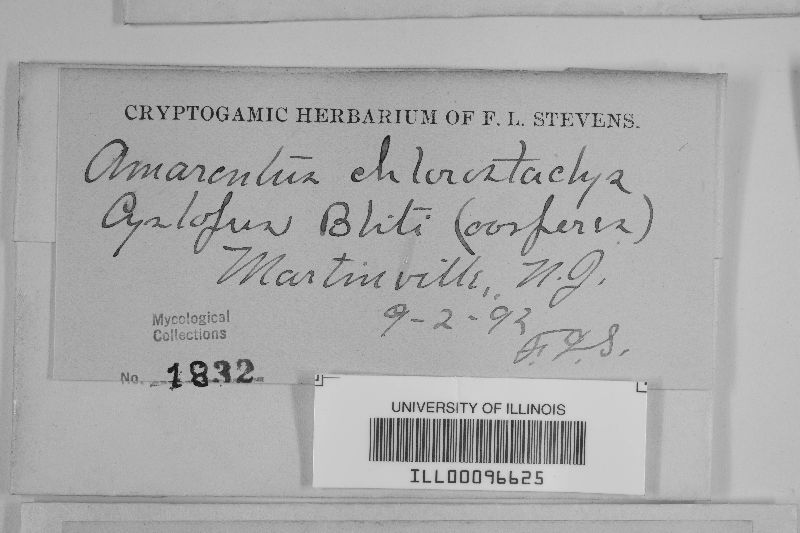 CRYPTOGAMIC HERBARIUM OF F. L. STEVENS.
Amarentus chlorostachys
Cystopus Bliti (oosperes)
Martinville, N.J.
9-2-92
F.L.S.
Mycological
Collections
No. 1832
UNIVERSITY OF ILLINOIS
ILL00096625